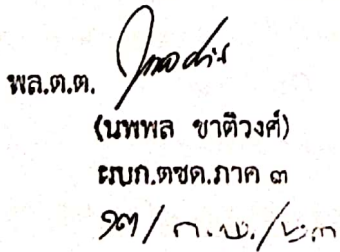 พล.ต.ต.
(นพพล ชาติวงศ์)
ผบก.ตชด.ภาค ๓
๑๓/ ก.พ./๒๓